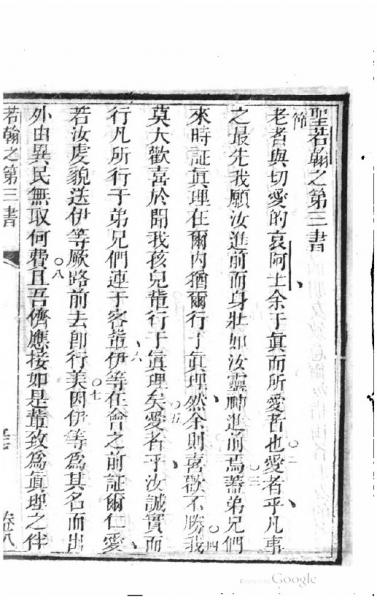 聖若翰之第三書
老者與切愛的哀阿士余于眞而所愛者也愛者乎凡事
之最先我願汝進前而身壯如汝靈神進前焉蓋弟兄們
來時証眞理在爾內猶爾行于眞理然余則喜歡不勝我
莫大歡喜於聞我孩兒輩行于眞理矣愛者乎汝誠實而
行凡所行于弟兄們連于客輩伊等在會之前証爾仁愛
若汝虔貌送伊等厥路前去卽行美因伊等爲其名而出
外由異民無取何費且吾儕應接如是輩致爲眞理之伴
若翰之第三書
Google